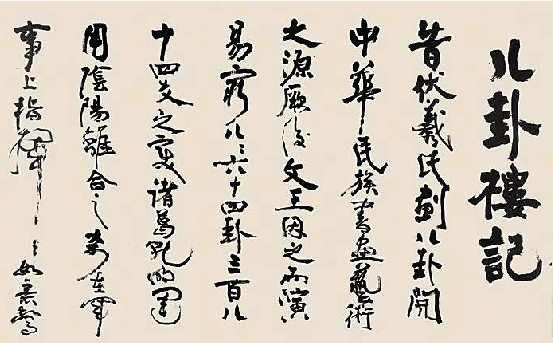 八卦樓記
昔伏羲氏劃八卦開
中華民族書畫藝術
大源厥後文王因之而演
易窮八八六十四卦三百八
十四爻之變諸葛孔明運
用陰陽離合之在軍
事上指揮如意驚